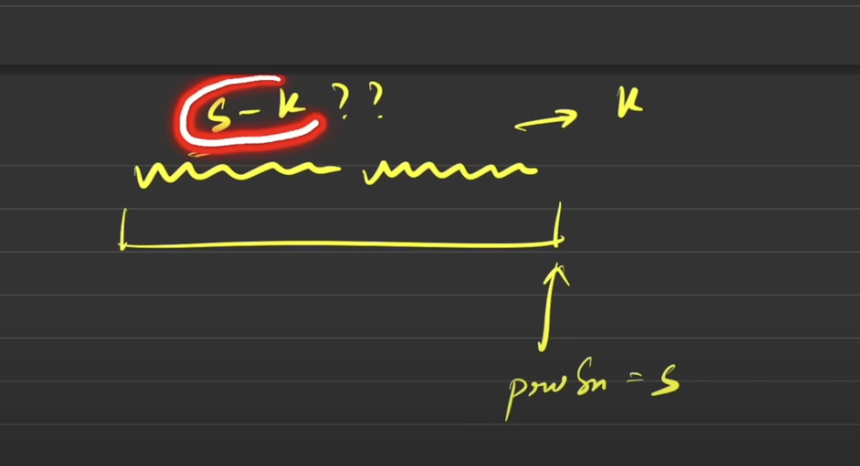 s - k ?? → k
preSum = s